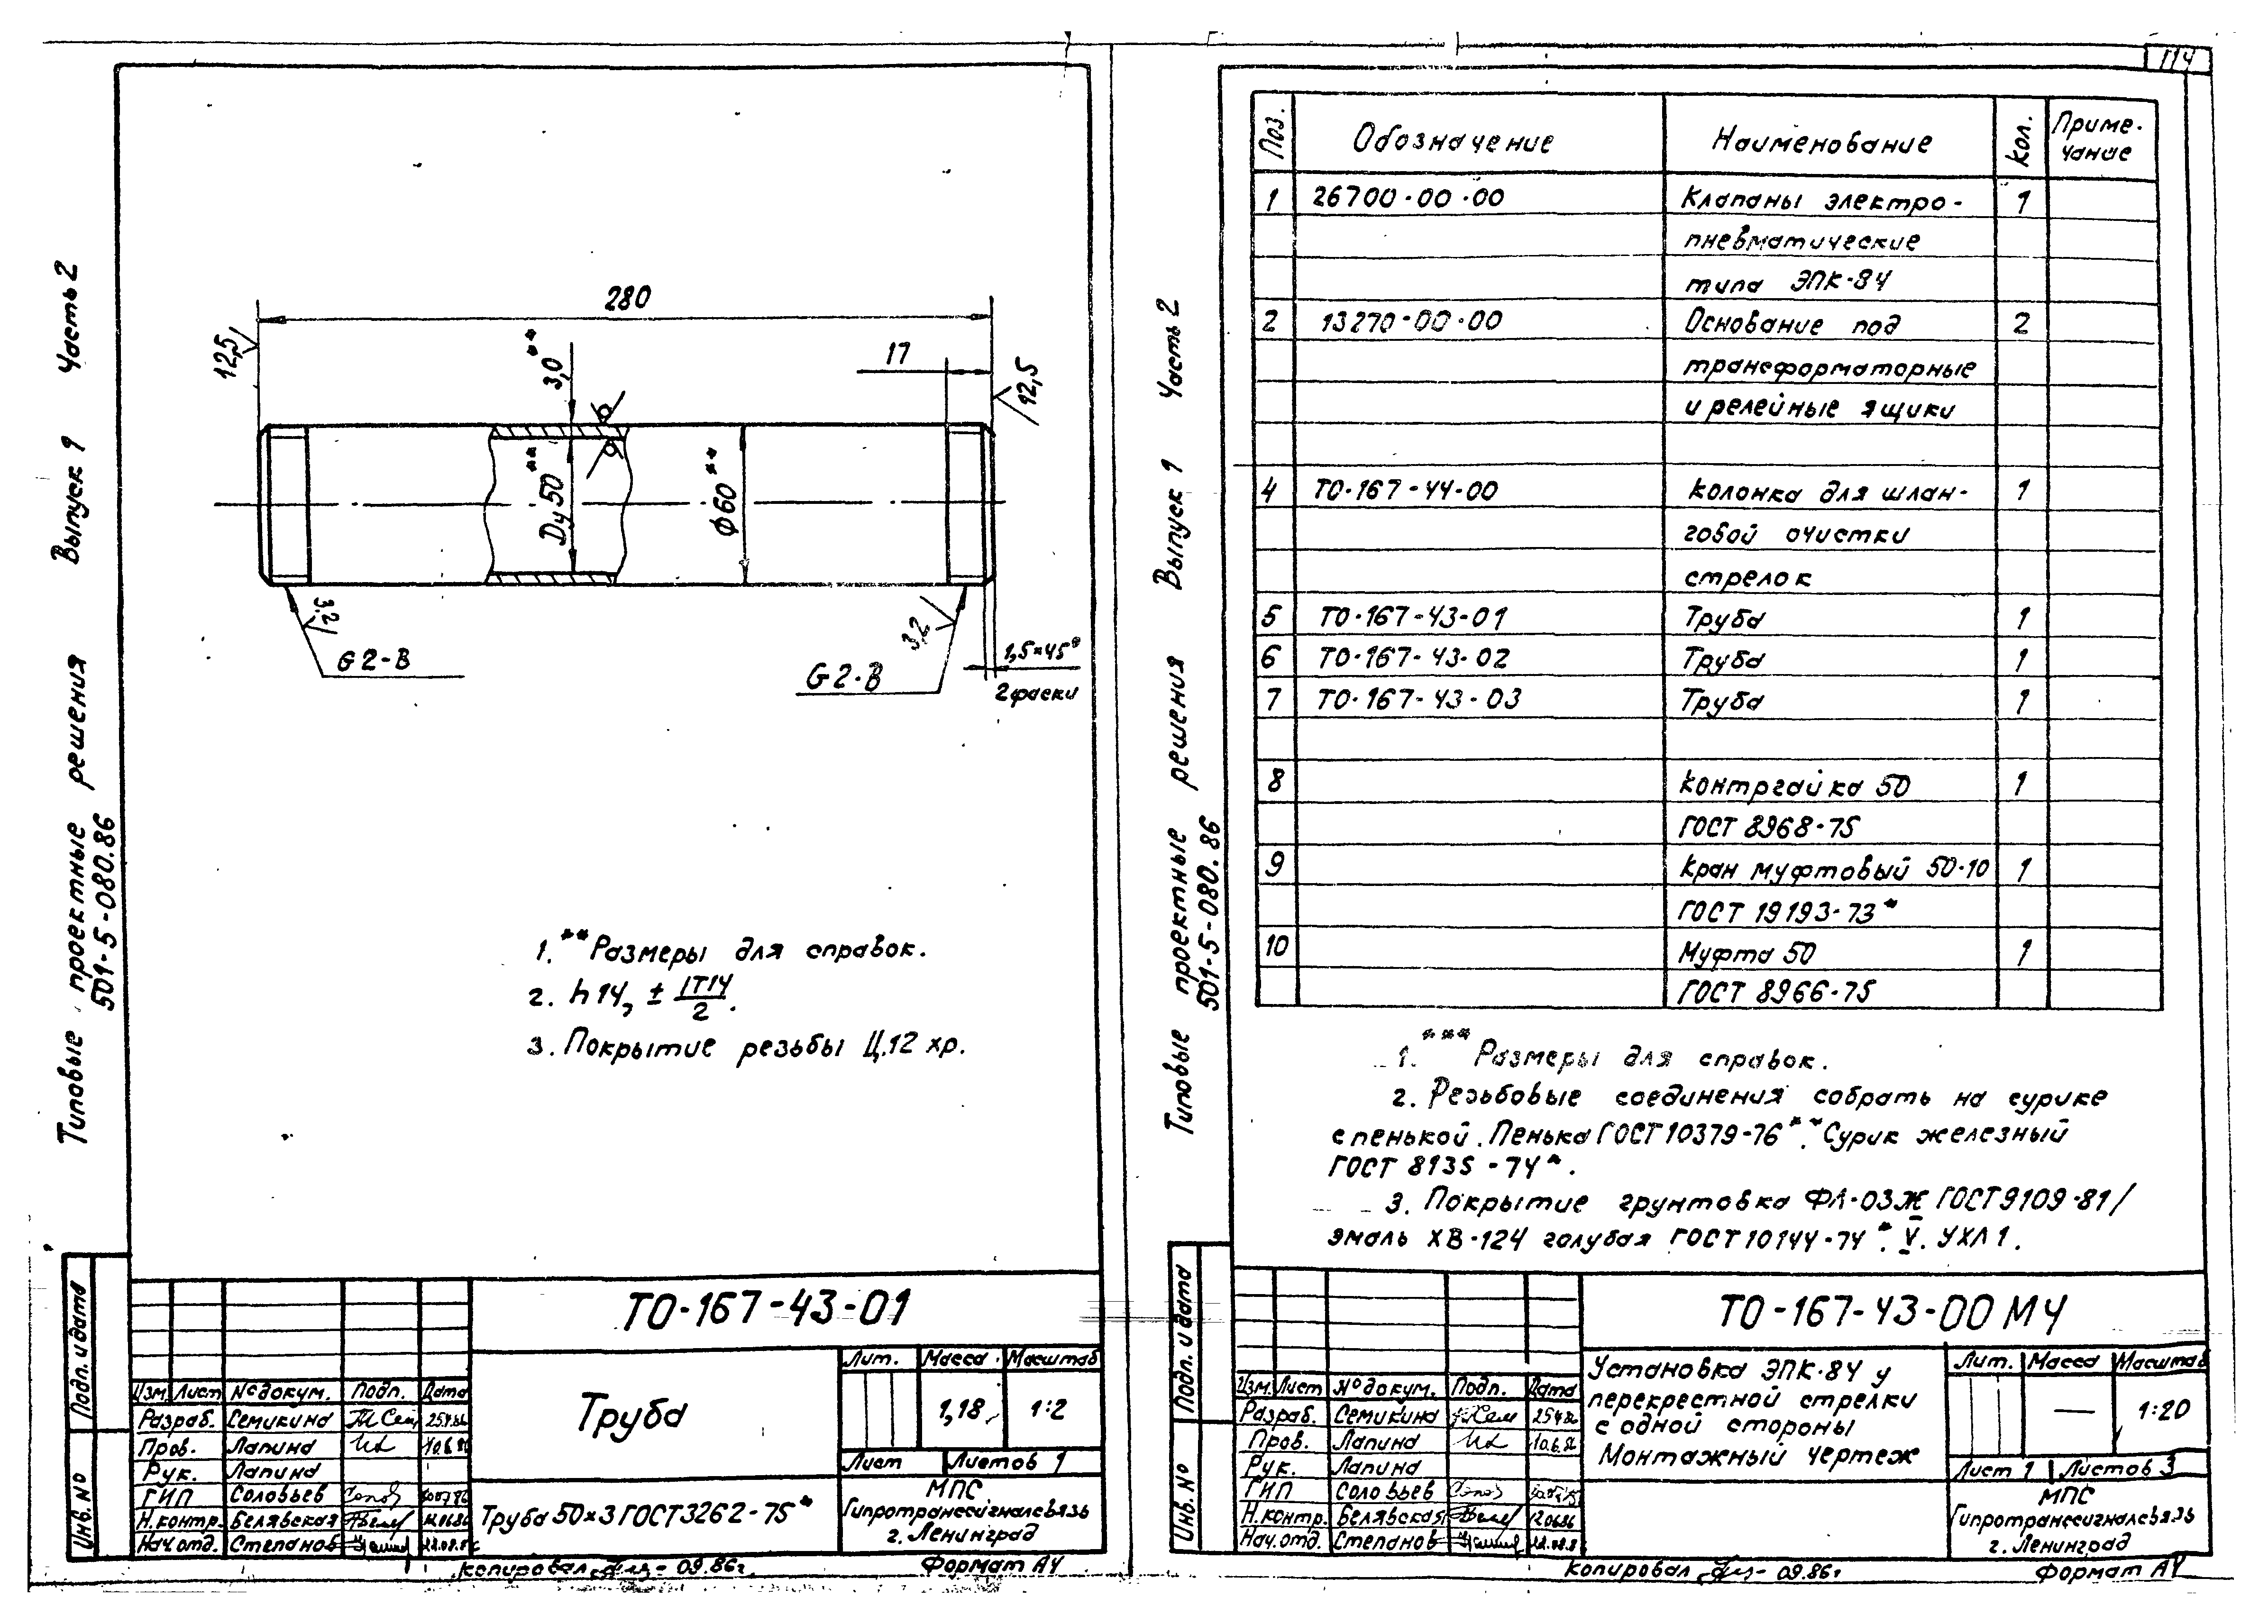 Типовые проектные решения Выпуск 1 Часть 2
501-5-080.86
280
12,5
3,0**
17
12,5
Dу 50**
ϕ60**
3,2
G2-B
3,2
G2-B
1,5×45°
2 фаски
1. **Размеры для справок.
2. h14, ± IT14/2.
3. Покрытие резьбы Ц.12 хр.
Подп. и дата
Инв. №
ТО-167-43-01
Лит. Масса Масштаб
Труба
1,18 1:2
Изм. Лист № докум. Подп. Дата
Разраб. Семикина
Пров. Лапина 10.6.86
Рук. Лапина
ГИП Соловьев
Н.контр. Белявская 12.06.86
Нач.отд. Степанов
Лист Листов 1
Труба 50×3 ГОСТ 3262-75*
МПС
Гипротранссигналсвязь
г. Ленинград
Копировал 09.86г.
Формат А4
114
Типовые проектные решения Выпуск 1 Часть 2
501-5-080.86
Поз. Обозначение Наименование Кол. Приме-
чание
1 26700-00-00 Клапаны электро- 1
пневматические
типа ЭПК-84
2 13270-00-00 Основание под 2
трансформаторные
и релейные ящики
4 ТО-167-44-00 Колонка для шлан- 1
говой очистки
стрелок
5 ТО-167-43-01 Труба 1
6 ТО-167-43-02 Труба 1
7 ТО-167-43-03 Труба 1
8 Контргайка 50 1
ГОСТ 8968-75
9 Кран муфтовый 50-10 1
ГОСТ 19193-73*
10 Муфта 50 1
ГОСТ 8966-75
1. ***Размеры для справок.
2. Резьбовые соединения собрать на сурике
с пенькой. Пенька ГОСТ 10379-76**. Сурик железный
ГОСТ 8135-74*.
3. Покрытие грунтовка ФЛ-03Ж ГОСТ 9109-81/
эмаль ХВ-124 голубая ГОСТ 10144-74*. V. УХЛ1.
Подп. и дата
Инв. №
ТО-167-43-00 МЧ
Установка ЭПК-84 у
перекрестной стрелки
с одной стороны
Монтажный чертеж
Лит. Масса Масштаб
— 1:20
Изм. Лист № докум. Подп. Дата
Разраб. Семикина
Пров. Лапина 10.6.86
Рук. Лапина
ГИП Соловьев
Н.контр. Белявская 12.06.86
Нач.отд. Степанов
Лист 1 Листов 3
МПС
Гипротранссигналсвязь
г. Ленинград
Копировал 09.86г
Формат А4